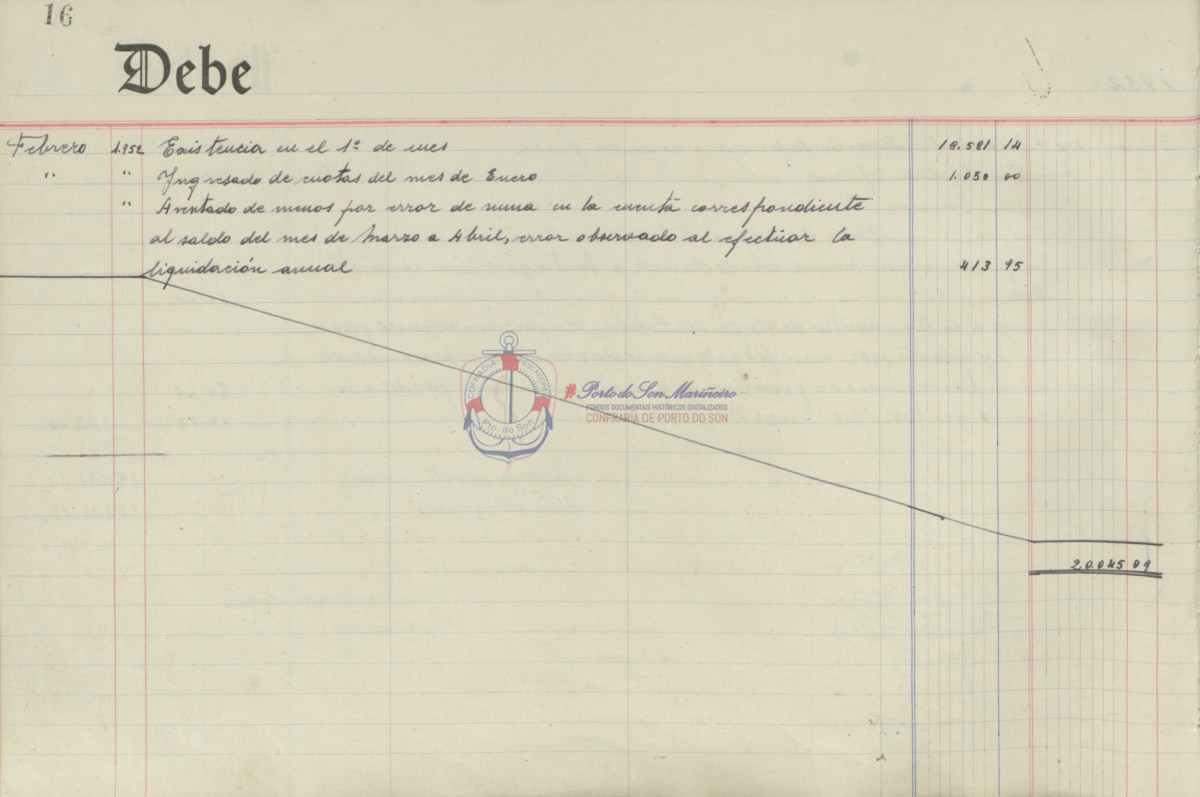 16
Debe
Febrero 1.952 Existencia en el 1º de mes 18.581 14
" " Ingresado de cuotas del mes de Enero 1.050 00
" Anotado de menos por error de suma en la cuenta correspondiente
al saldo del mes de Marzo a Abril, error observado al efectuar la
liquidación anual 413 95
COFRADIA PESCADORES
Pto. do Son
#Porto do Son Mariñeiro
FONDOS DOCUMENTAIS HISTÓRICOS DIXITALIZADOS
CONFRARÍA DE PORTO DO SON
20.045 09